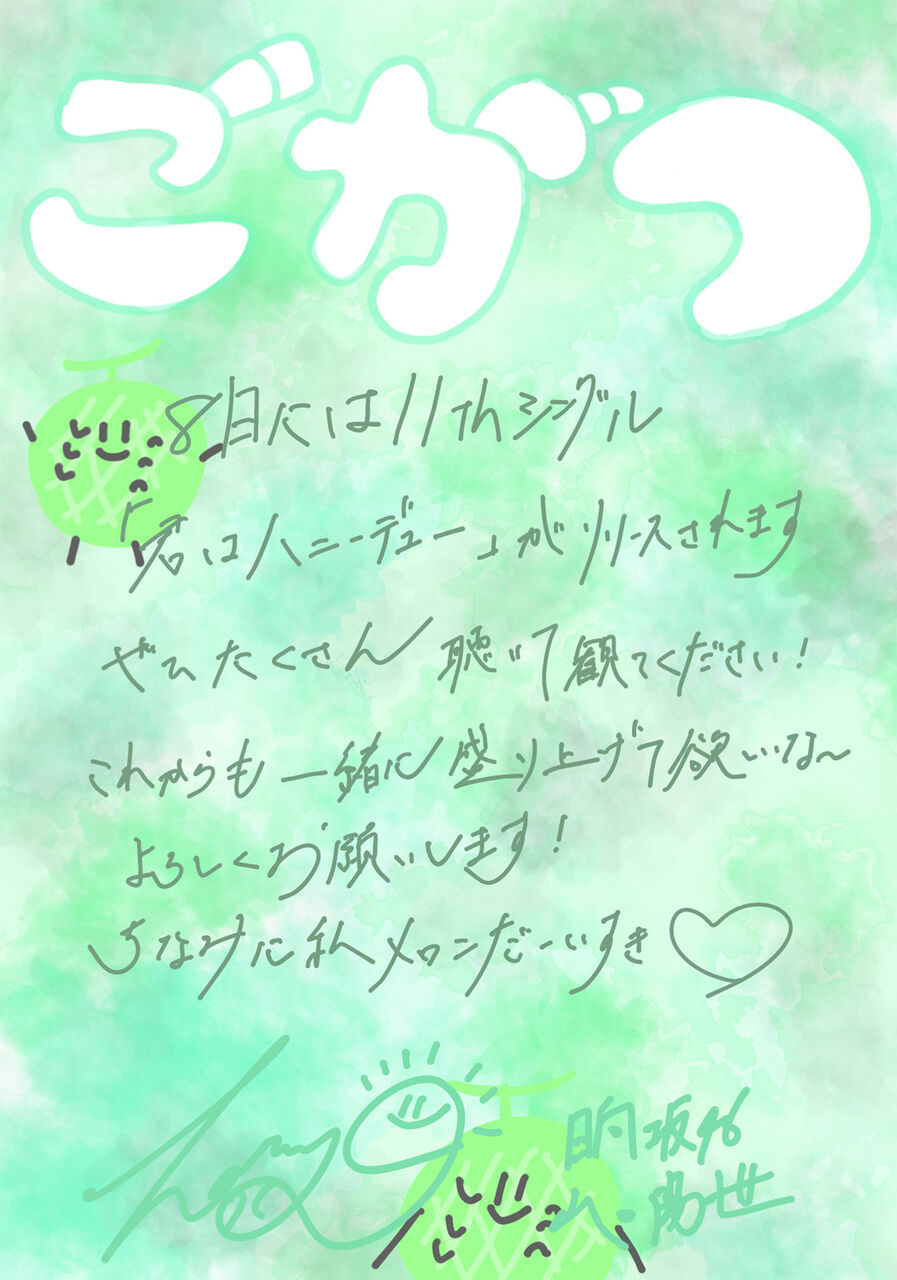 ごがつ
8日には11thシングル
「君はハニーデュー」がリリースされます
ぜひたくさん聴いて観てください!
これからも一緒に盛り上げて欲しいな〜
よろしくお願いします!
ちなみに私メロンだーいすき♡
日向坂46
陽世